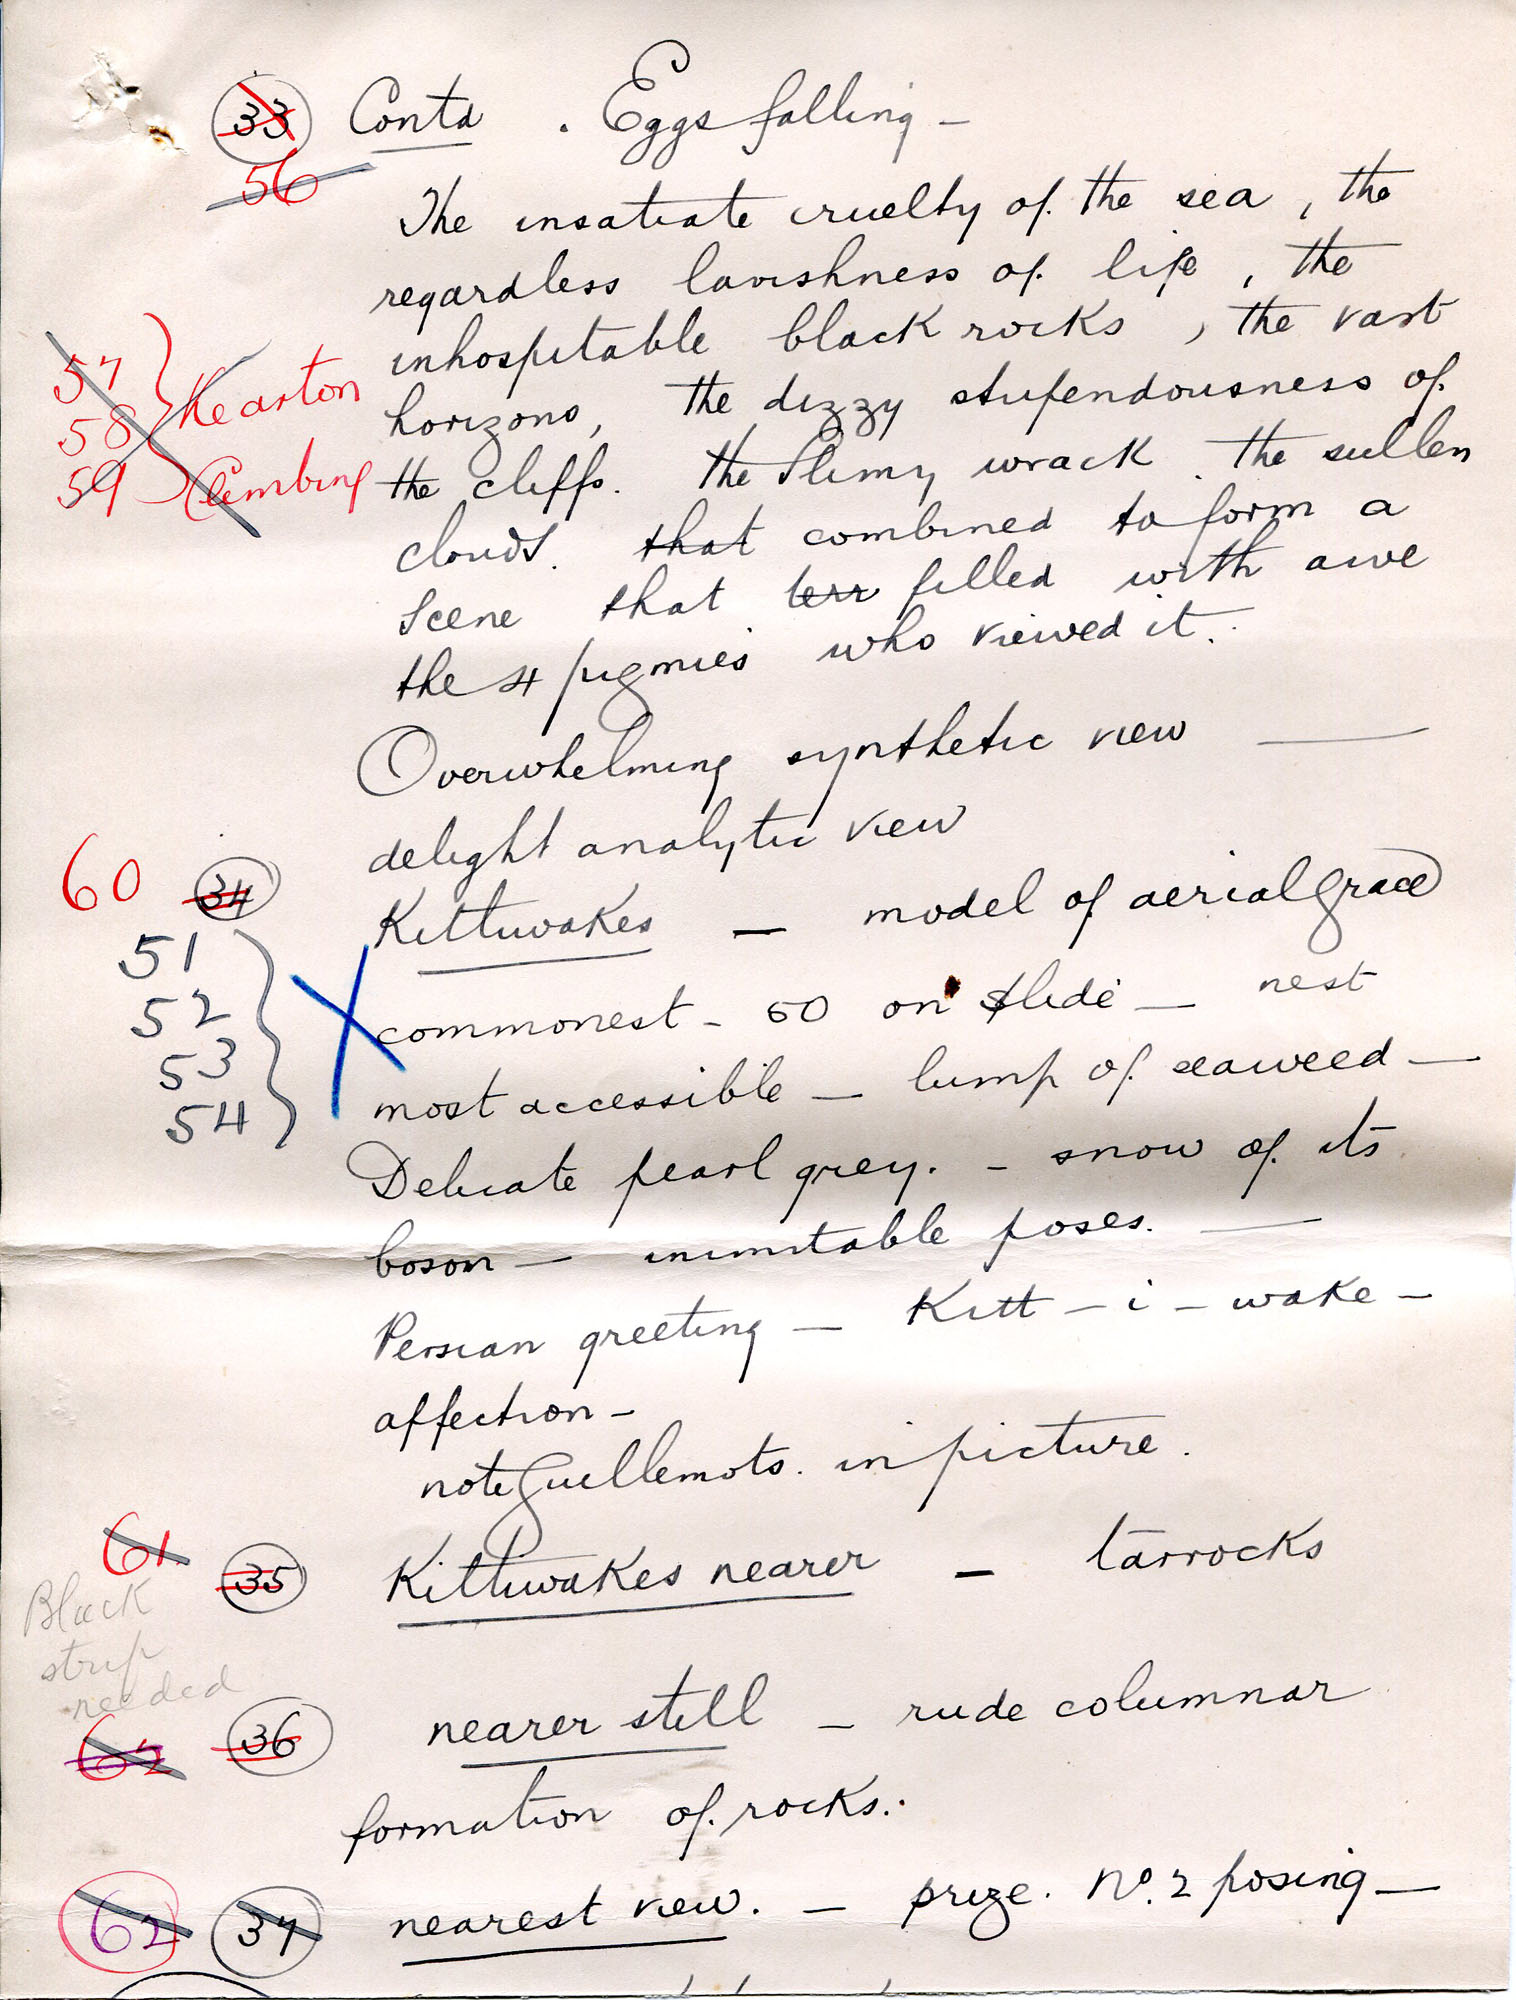 33 Contd . Eggs falling —
56
The insatiate cruelty of the sea, the
regardless lavishness of life, the
inhospitable black rocks, the vast
57
58
59
Kearton
Climbing
horizons, the dizzy stupendousness of
the cliffs. the slimy wrack the sullen
clouds. that combined to form a
scene that terr filled with awe
the 4 pigmies who viewed it.
Overwhelming synthetic view —
delight analytic view
60 34 Kittiwakes — model of aerial grace
51
52
53
54
commonest - 50 on slide — nest
most accessible — lump of seaweed —
Delicate pearl grey. - snow of its
boson — inimitable poses. —
Persian greeting — Kitt - i - wake -
affection -
note Guillemots. in picture.
61 35 Kittiwakes nearer — tarrocks
Black
strip
needed
62 36 nearer still — rude columnar
formation of rocks.
62 37 nearest view. — prize. No. 2 posing —